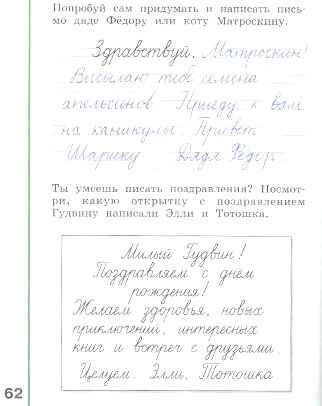 Попробуй сам придумать и написать пись-
мо дяде Фёдору или коту Матроскину.
Здравствуй, Матроскин!
Высылаю тебе семена
апельсинов Приеду к вам
на каникулы. Привет
Шарику Дядя Фёдор.
Ты умеешь писать поздравления? Посмот-
ри, какую открытку с поздравлением
Гудвину написали Элли и Тотошка.
Милый Гудвин!
Поздравляем с днём
рождения!
Желаем здоровья, новых
приключений, интересных
книг и встреч с друзьями.
Целуем. Элли, Тотошка
62